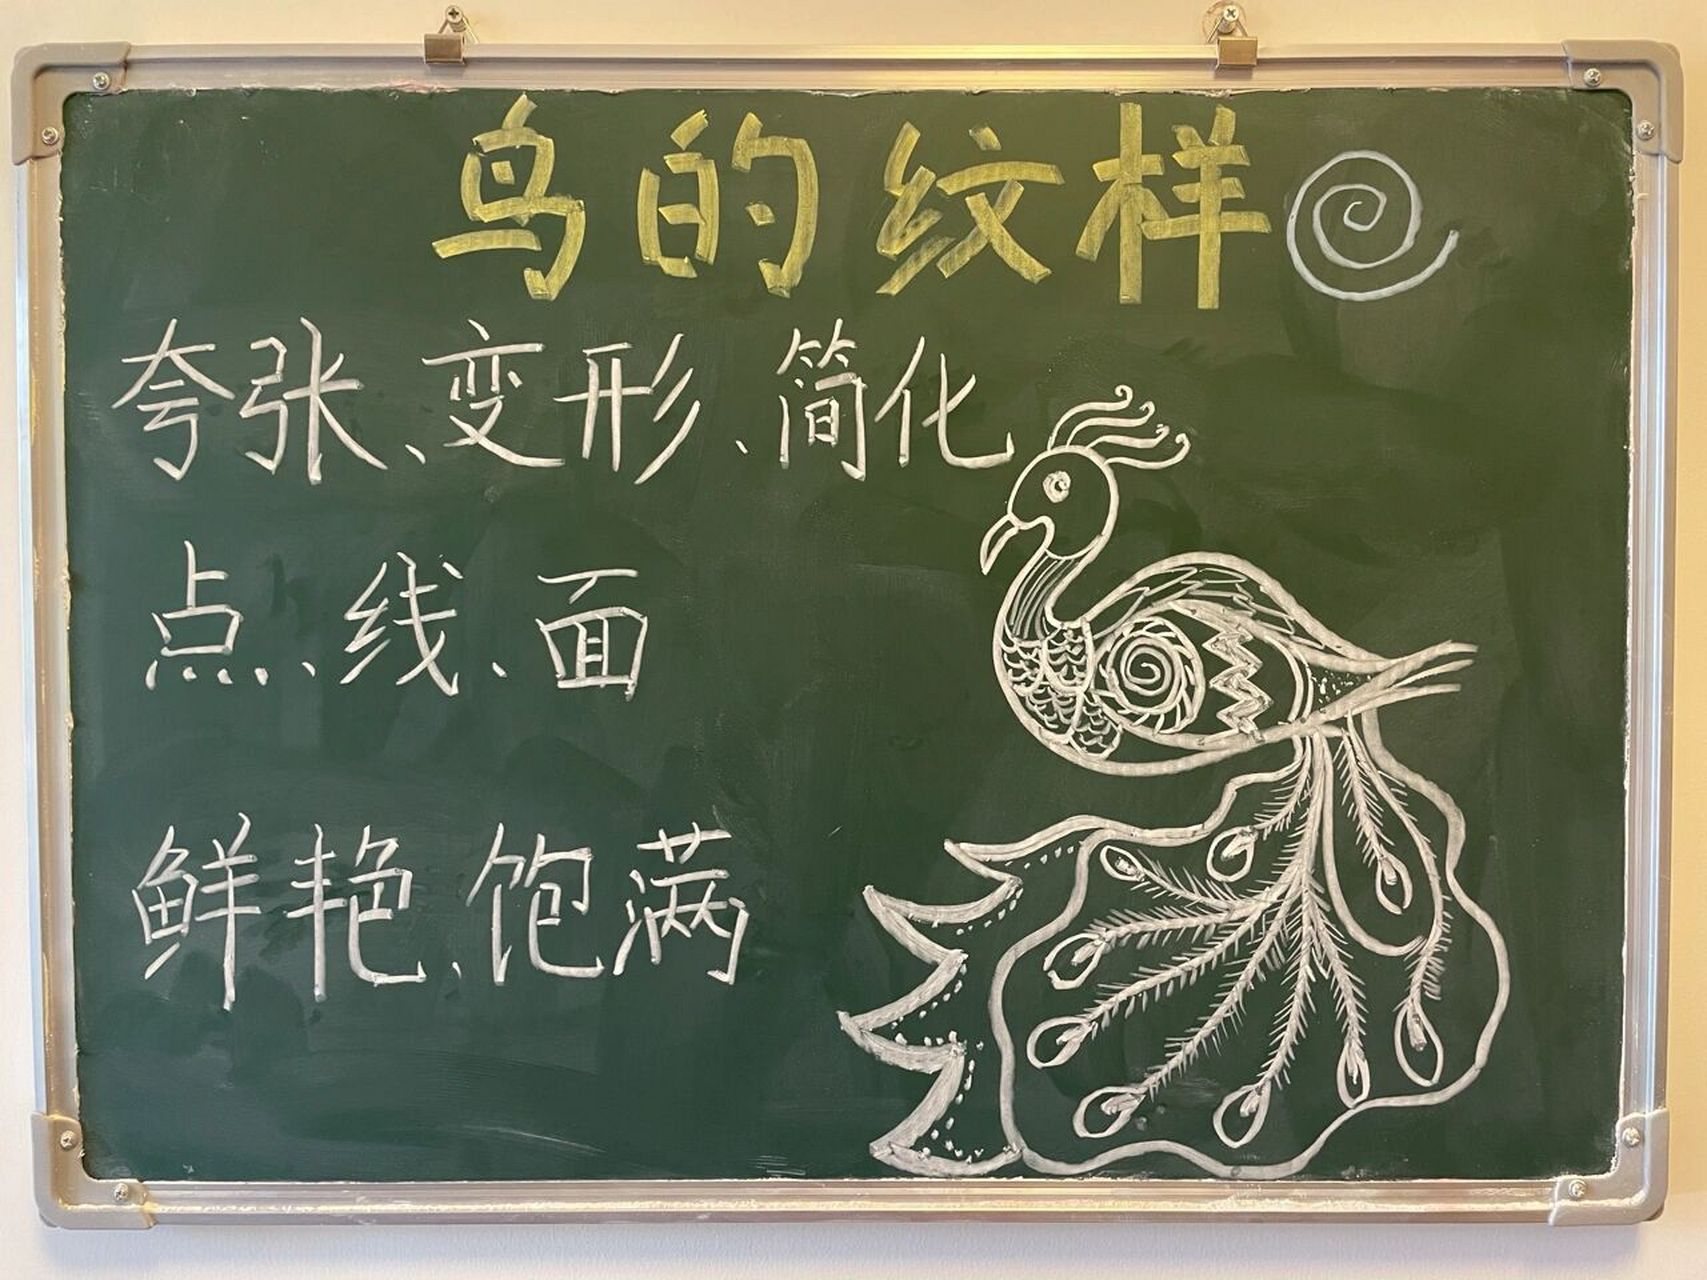 鸟的纹样
夸张、变形、简化
点、线、面
鲜艳、饱满